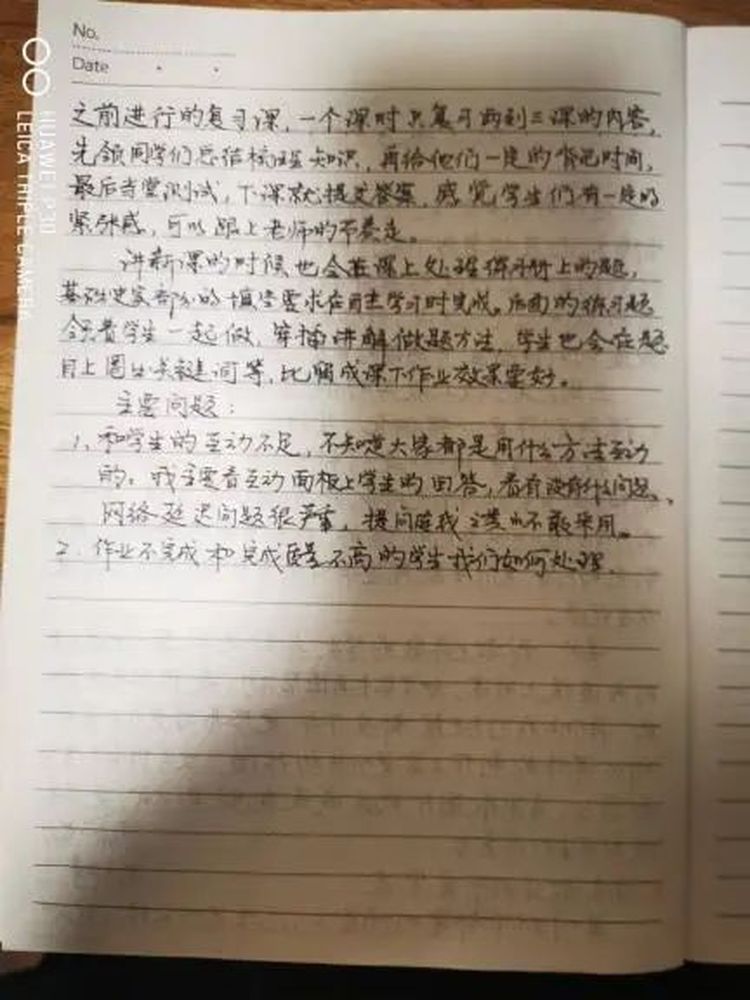 No.
Date
之前进行的复习课，一个课时只复习两到三课的内容，
先领同学们总结梳理知识，再给他们一定的背记时间，
最后当堂测试，下课就提交答案，感觉学生们有一定的
紧张感，可以跟上老师的节奏走。
讲新课的时候也会在课上处理练习册上的题，
基础史实部分的填空要求在自主学习时完成。后面的练习题
领着学生一起做，穿插讲解做题方法，学生也会在题
目上圈出关键词等，比留成课下作业效果要好。
主要问题：
1、和学生的互动不足，不知道大家都是用什么方法互动
的。我主要看互动面板上学生的回答，看有没有什么问题、
网络延迟问题很严重，提问连我之类也不敢采用。
2、作业不完成和完成质量不高的学生我们如何处理.
HUAWEI P30
LEICA TRIPLE CAMERA